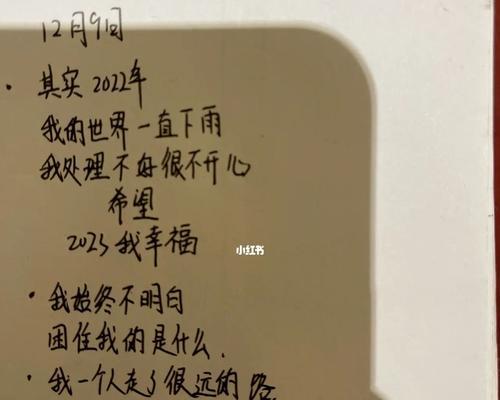 12月9日
· 其实2022年
我的世界一直下雨
我处理不好很不开心
希望
2023我幸福
小红书
· 我始终不明白
困住我的是什么.
· 我一个人走了很远的路